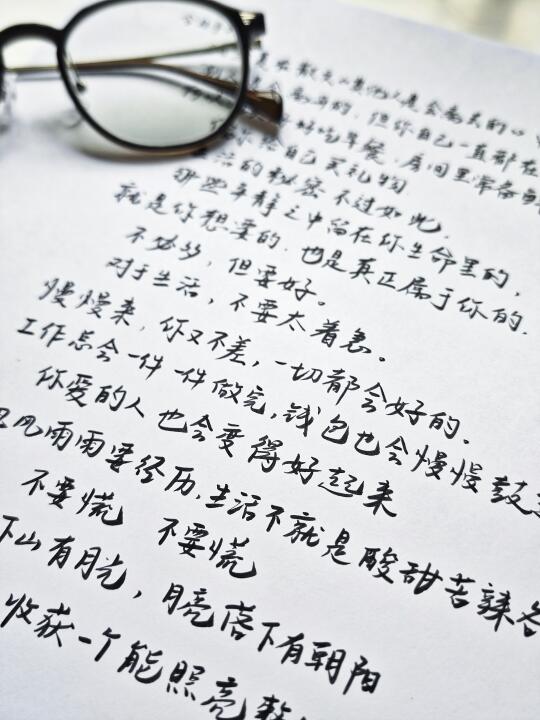 其他人是会离去的
会离去的,但你自己一直都在
好吃早餐,房间里
给自己买礼物,
活的秘密不过如此,
那些平静之中留在你生命里的,
就是你想要的,也是真正属于你的.
不必多,但要好。
对于生活,不要太着急。
慢慢来,你又不差,一切都会好的.
工作总会一件一件做完,钱包也会慢慢鼓起
你爱的人也会变得好起来
风雨雨要经历,生活不就是酸甜苦辣各
不要慌 不要慌
下山有月光,月亮落下有朝阳
收获一个能照亮整